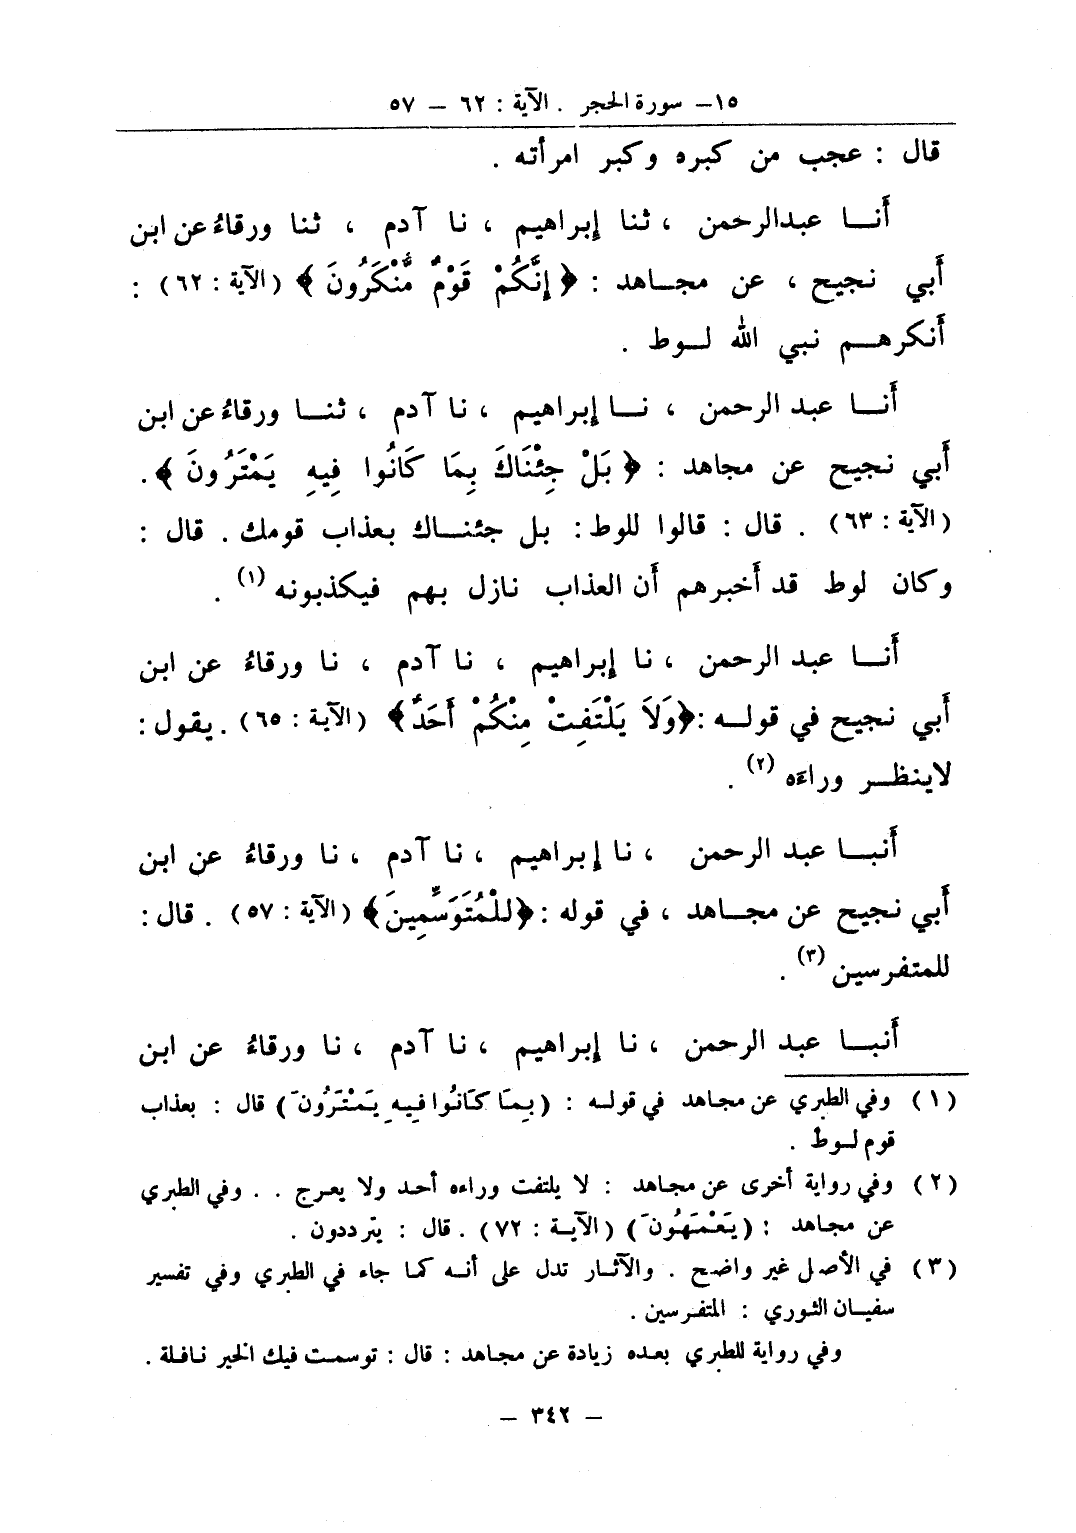 ١٥- سورة الحجر . الآية : ٦٢ – ٥٧
قال : عجب من كبره وكبر امرأته .
أنا عبدالرحمن ، ثنا إبراهيم ، نا آدم ، ثنا ورقاءُ عن ابن
أبي نجيح ، عن مجاهد : ﴿ إِنَّكُمْ قَوْمٌ مُّنْكَرُونَ ﴾ (الآية : ٦٢) :
أنكرهم نبي الله لوط .
أنا عبد الرحمن ، نا إبراهيم ، نا آدم ، ثنا ورقاءُ عن ابن
أبي نجيح عن مجاهد : ﴿ بَلْ جِئْنَاكَ بِمَا كَانُوا فِيهِ يَمْتَرُونَ ﴾.
(الآية : ٦٣) . قال : قالوا للوط : بل جئناك بعذاب قومك . قال :
وكان لوط قد أخبرهم أن العذاب نازل بهم فيكذبونه (١) .
أنا عبد الرحمن ، نا إبراهيم ، نا آدم ، نا ورقاءُ عن ابن
أبي نجيح في قوله :﴿وَلاَ يَلْتَفِتْ مِنْكُمْ أَحَدٌ﴾ (الآية : ٦٥) . يقول :
لاينظر وراءَه (٢) .
أنبا عبد الرحمن ، نا إبراهيم ، نا آدم ، نا ورقاءُ عن ابن
أبي نجيح عن مجاهد ، في قوله :﴿للْمُتَوَسِّمِينَ﴾ (الآية : ٥٧) . قال :
للمتفرسين (٣) .
أنبا عبد الرحمن ، نا إبراهيم ، نا آدم ، نا ورقاءُ عن ابن
(١) وفي الطبري عن مجاهد في قوله : (بِمَا كَانُوا فِيهِ يَمْتَرُونَ) قال : بعذاب
قوم لوط .
(٢) وفي رواية أخرى عن مجاهد : لا يلتفت وراءه أحد ولا يعرج . . وفي الطبري
عن مجاهد : (يَعْمَهُونَ) (الآية : ٧٢) . قال : يترددون .
(٣) في الأصل غير واضح . والآثار تدل على أنه كما جاء في الطبري وفي تفسير
سفيان الثوري : المتفرسين .
وفي رواية للطبري بعده زيادة عن مجاهد : قال : توسمت فيك الخير نافلة .
– ٣٤٢ –